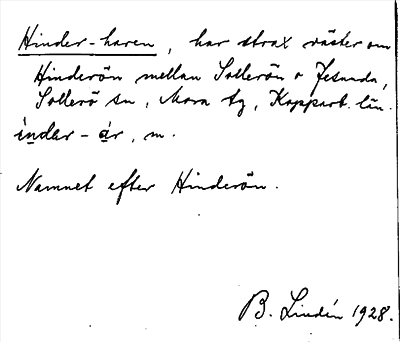 Hinder-haren, har strax väster om
Hinderön mellan Sollerön o Gesunda,
Sollerö sn, Mora tg, Kopparb. län.
ìndar-ár, m.
Namnet efter Hinderön.
B. Lindén 1928.